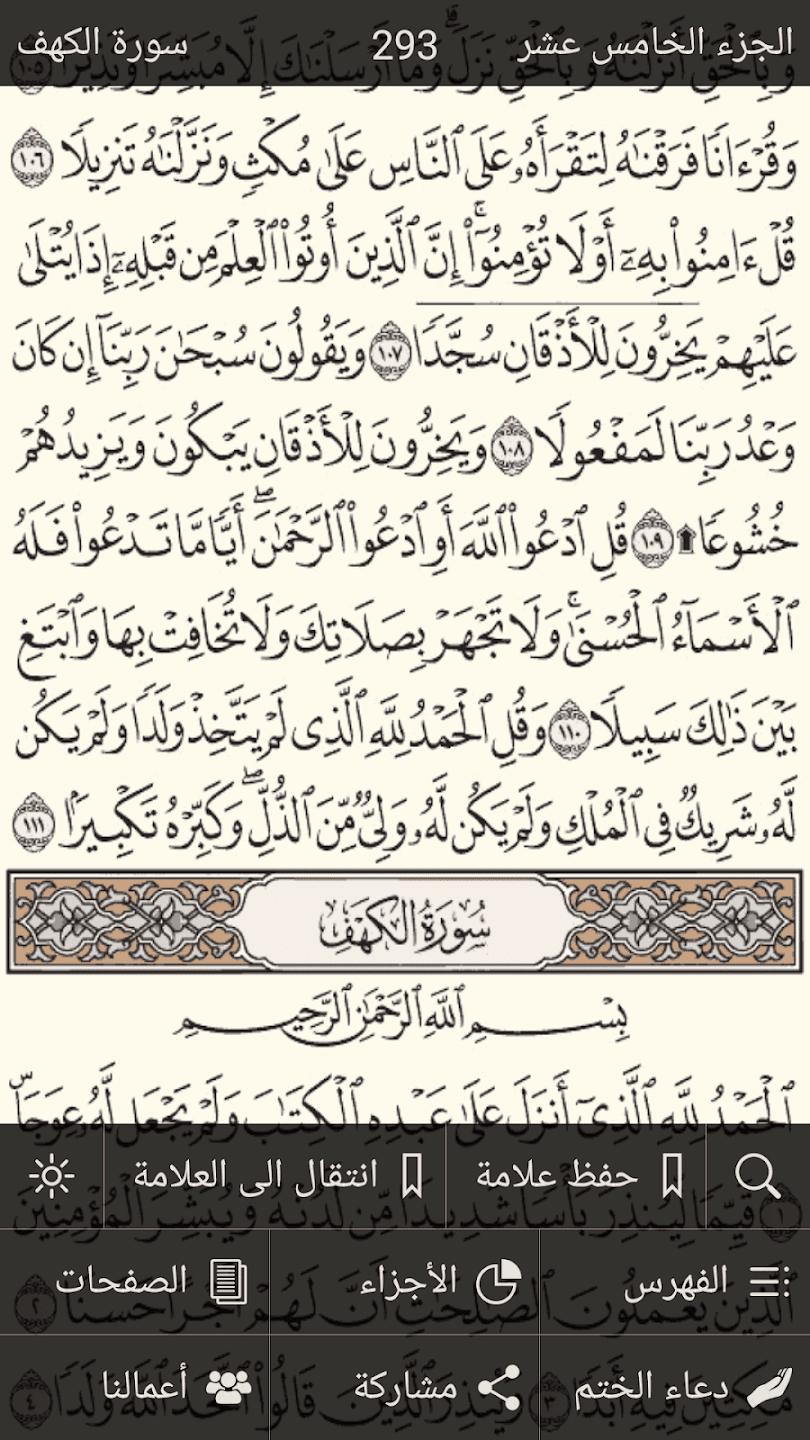 الجزء الخامس عشر 293 سورة الكهف
وَبِٱلْحَقِّ أَنزَلْنَٰهُ وَبِٱلْحَقِّ نَزَلَ ۗ وَمَآ أَرْسَلْنَٰكَ إِلَّا مُبَشِّرًا وَنَذِيرًا ١٠٥
وَقُرْءَانًا فَرَقْنَٰهُ لِتَقْرَأَهُۥ عَلَى ٱلنَّاسِ عَلَىٰ مُكْثٍ وَنَزَّلْنَٰهُ تَنزِيلًا ١٠٦
قُلْ ءَامِنُوا۟ بِهِۦٓ أَوْ لَا تُؤْمِنُوٓا۟ ۚ إِنَّ ٱلَّذِينَ أُوتُوا۟ ٱلْعِلْمَ مِن قَبْلِهِۦٓ إِذَا يُتْلَىٰ
عَلَيْهِمْ يَخِرُّونَ لِلْأَذْقَانِ سُجَّدًا ١٠٧ وَيَقُولُونَ سُبْحَٰنَ رَبِّنَآ إِن كَانَ
وَعْدُ رَبِّنَا لَمَفْعُولًا ١٠٨ وَيَخِرُّونَ لِلْأَذْقَانِ يَبْكُونَ وَيَزِيدُهُمْ
خُشُوعًا ۩ ١٠٩ قُلِ ٱدْعُوا۟ ٱللَّهَ أَوِ ٱدْعُوا۟ ٱلرَّحْمَٰنَ ۖ أَيًّا مَّا تَدْعُوا۟ فَلَهُ
ٱلْأَسْمَآءُ ٱلْحُسْنَىٰ ۚ وَلَا تَجْهَرْ بِصَلَاتِكَ وَلَا تُخَافِتْ بِهَا وَٱبْتَغِ
بَيْنَ ذَٰلِكَ سَبِيلًا ١١٠ وَقُلِ ٱلْحَمْدُ لِلَّهِ ٱلَّذِى لَمْ يَتَّخِذْ وَلَدًا وَلَمْ يَكُن
لَّهُۥ شَرِيكٌ فِى ٱلْمُلْكِ وَلَمْ يَكُن لَّهُۥ وَلِىٌّ مِّنَ ٱلذُّلِّ ۖ وَكَبِّرْهُ تَكْبِيرًۢا ١١١
سُورَةُ الكَهْفِ
بِسْمِ ٱللَّهِ ٱلرَّحْمَٰنِ ٱلرَّحِيمِ
ٱلْحَمْدُ لِلَّهِ ٱلَّذِىٓ أَنزَلَ عَلَىٰ عَبْدِهِ ٱلْكِتَٰبَ وَلَمْ يَجْعَل لَّهُۥ عِوَجَا ۜ
حفظ علامة انتقال الى العلامة
١ قَيِّمًا لِّيُنذِرَ بَأْسًا شَدِيدًا مِّن لَّدُنْهُ وَيُبَشِّرَ ٱلْمُؤْمِنِينَ
الفهرس الأجزاء الصفحات
ٱلَّذِينَ يَعْمَلُونَ ٱلصَّٰلِحَٰتِ أَنَّ لَهُمْ أَجْرًا حَسَنًا ٢
دعاء الختم مشاركة أعمالنا
مَّٰكِثِينَ فِيهِ أَبَدًا ٣ وَيُنذِرَ ٱلَّذِينَ قَالُوا۟ ٱتَّخَذَ ٱللَّهُ وَلَدًا ٤